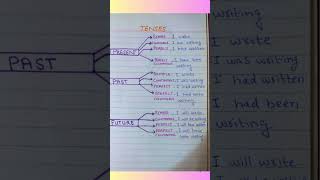 TENSES
SIMPLE - I write
CONTINUOUS - I am writing
PRESENT
PERFECT - I have written
PERFECT - I have been
CONTINUOUS writing
SIMPLE - I wrote
CONTINUOUS - I was writing
PAST
PERFECT - I had written
PERFECT - I had been
CONTINUOUS writing
SIMPLE - I will write
CONTINUOUS - I will be writing
FUTURE
PERFECT - I will have written
PERFECT - I will have
CONTINUOUS been writing
PAST
writing
I wrote
I was writing
I had written
I had been
writing
I will write